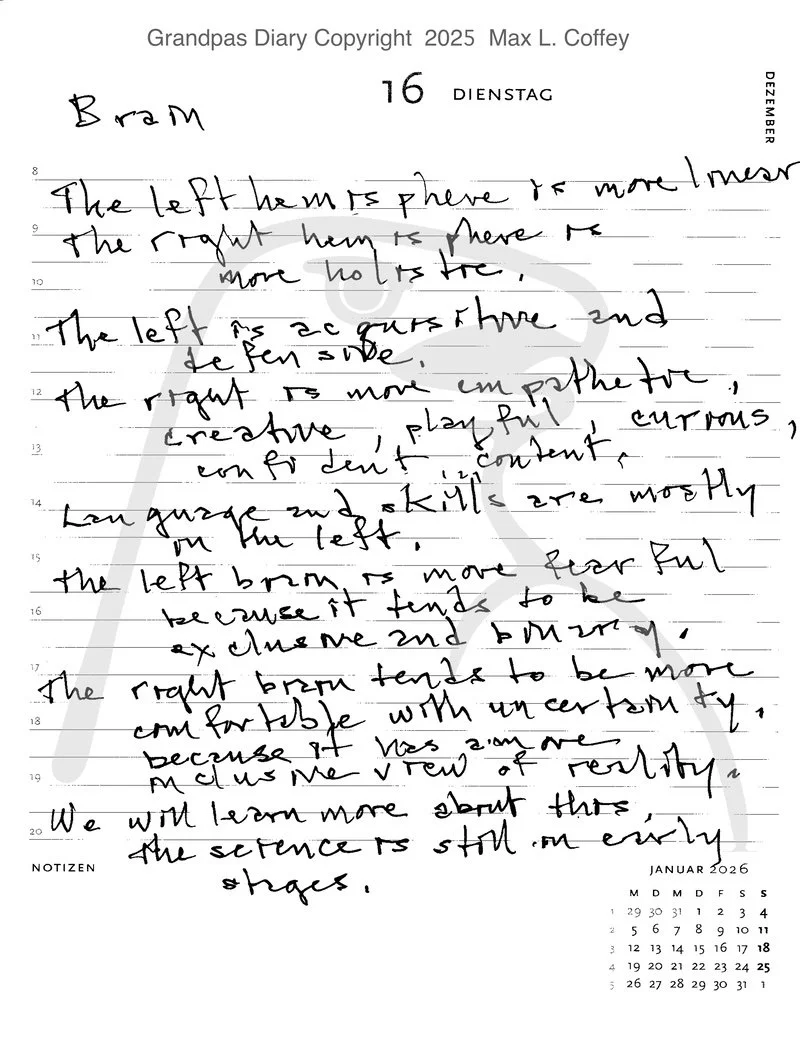 Grandpas Diary Copyright 2025 Max L. Coffey
16 DIENSTAG
DEZEMBER
Brain
8
The left hemisphere is more linear
9
the right hemisphere is
10
more holistic.
11
The left is acquisitive and
defensive.
12
the right is more empathetic,
creative, playful, curious,
13
confident, content.
14
Language and skills are mostly
in the left.
15
the left brain is more fearful
16
because it tends to be
exclusive and binary.
17
The right brain tends to be more
18
comfortable with uncertainty,
because it has a more
19
inclusive view of reality.
We will learn more about this,
20
the science is still in early
stages.
NOTIZEN
JANUAR 2026
M D M D F S S
1 29 30 31 1 2 3 4
2 5 6 7 8 9 10 11
3 12 13 14 15 16 17 18
4 19 20 21 22 23 24 25
5 26 27 28 29 30 31 1